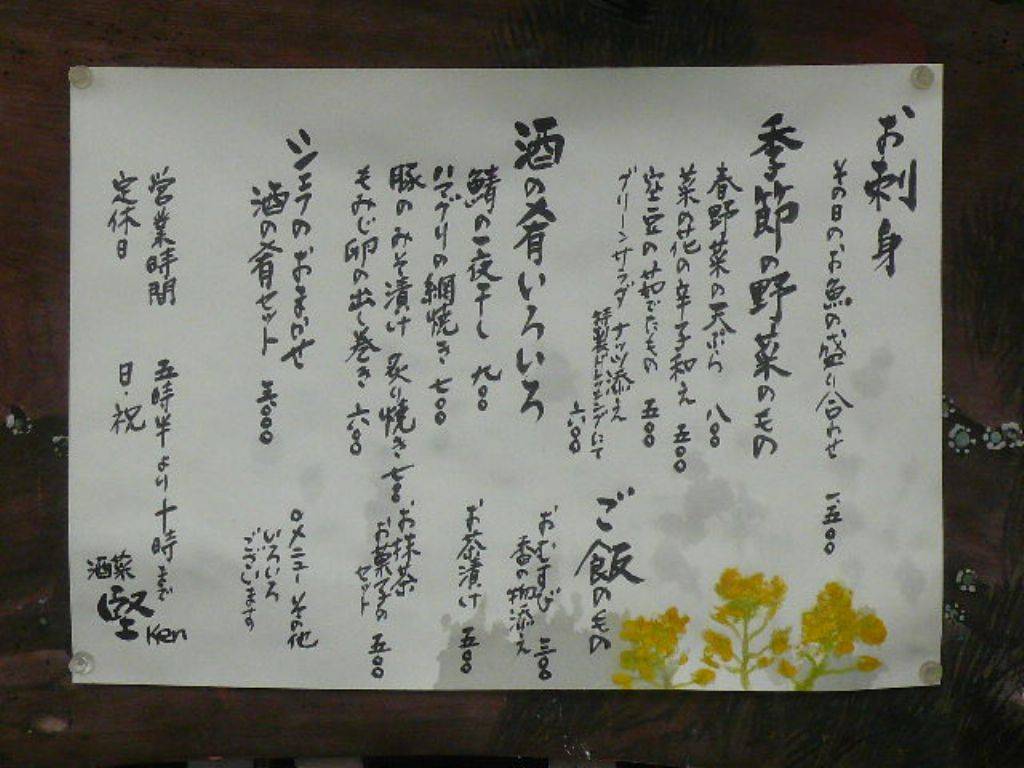 お刺身
その日のお魚の盛り合わせ 一五〇〇
季節の野菜のもの
春野菜の天ぷら 八〇〇
菜の花の辛子和え 五〇〇
空豆の茹でたもの 五〇〇
グリーンサラダ ナッツ添え
特製ドレッシングにて 六〇〇
酒の肴いろいろ
鯖の一夜干し 九〇〇
ハマグリの網焼き 七〇〇
豚のみそ漬け 炙り焼き 七〇〇
もみじ卵の出し巻き 六〇〇
シェフのおまかせ
酒の肴セット 三〇〇〇
ご飯のもの
おむすび 三〇〇
香の物添え
お茶漬け 五〇〇
お抹茶
お菓子の
セット 五〇〇
〇メニューその他
いろいろ
ございます
営業時間 五時半より十時まで
定休日 日・祝
酒菜
堅
Ken